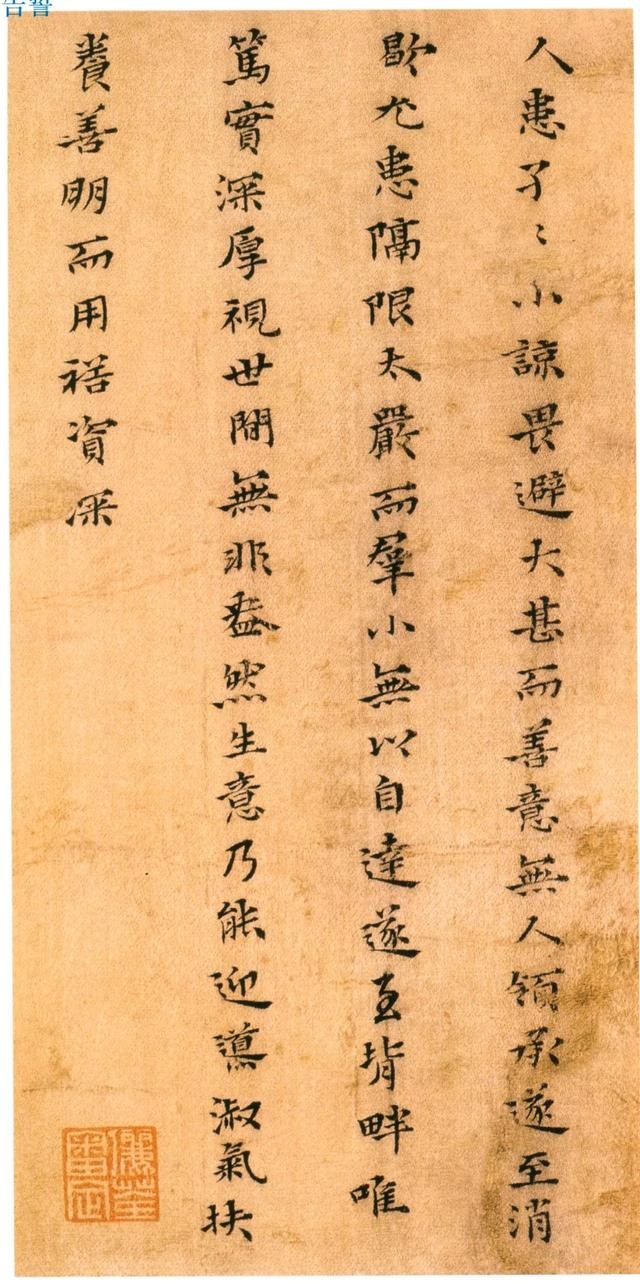 告誓
人患孑〻小諒畏避大甚而善意無人領承遂至消
歇尤患隔限太嚴而羣小無以自達遂至背畔唯
篤實深厚視世間無非盎然生意乃能迎導淑氣扶
養善明而用資深